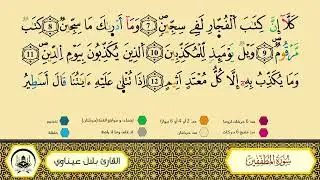 كَلَّآ إِنَّ كِتَٰبَ ٱلْفُجَّارِ لَفِى سِجِّينٍ (7) وَمَآ أَدْرَىٰكَ مَا سِجِّينٌ (8) كِتَٰبٌ
مَّرْقُومٌ (9) وَيْلٌ يَوْمَئِذٍ لِّلْمُكَذِّبِينَ (10) ٱلَّذِينَ يُكَذِّبُونَ بِيَوْمِ ٱلدِّينِ (11)
وَمَا يُكَذِّبُ بِهِۦٓ إِلَّا كُلُّ مُعْتَدٍ أَثِيمٍ (12) إِذَا تُتْلَىٰ عَلَيْهِ ءَايَٰتُنَا قَالَ أَسَٰطِيرُ
القارئ بلال عيناوي
سُورَةُ المُطَفِّفِين